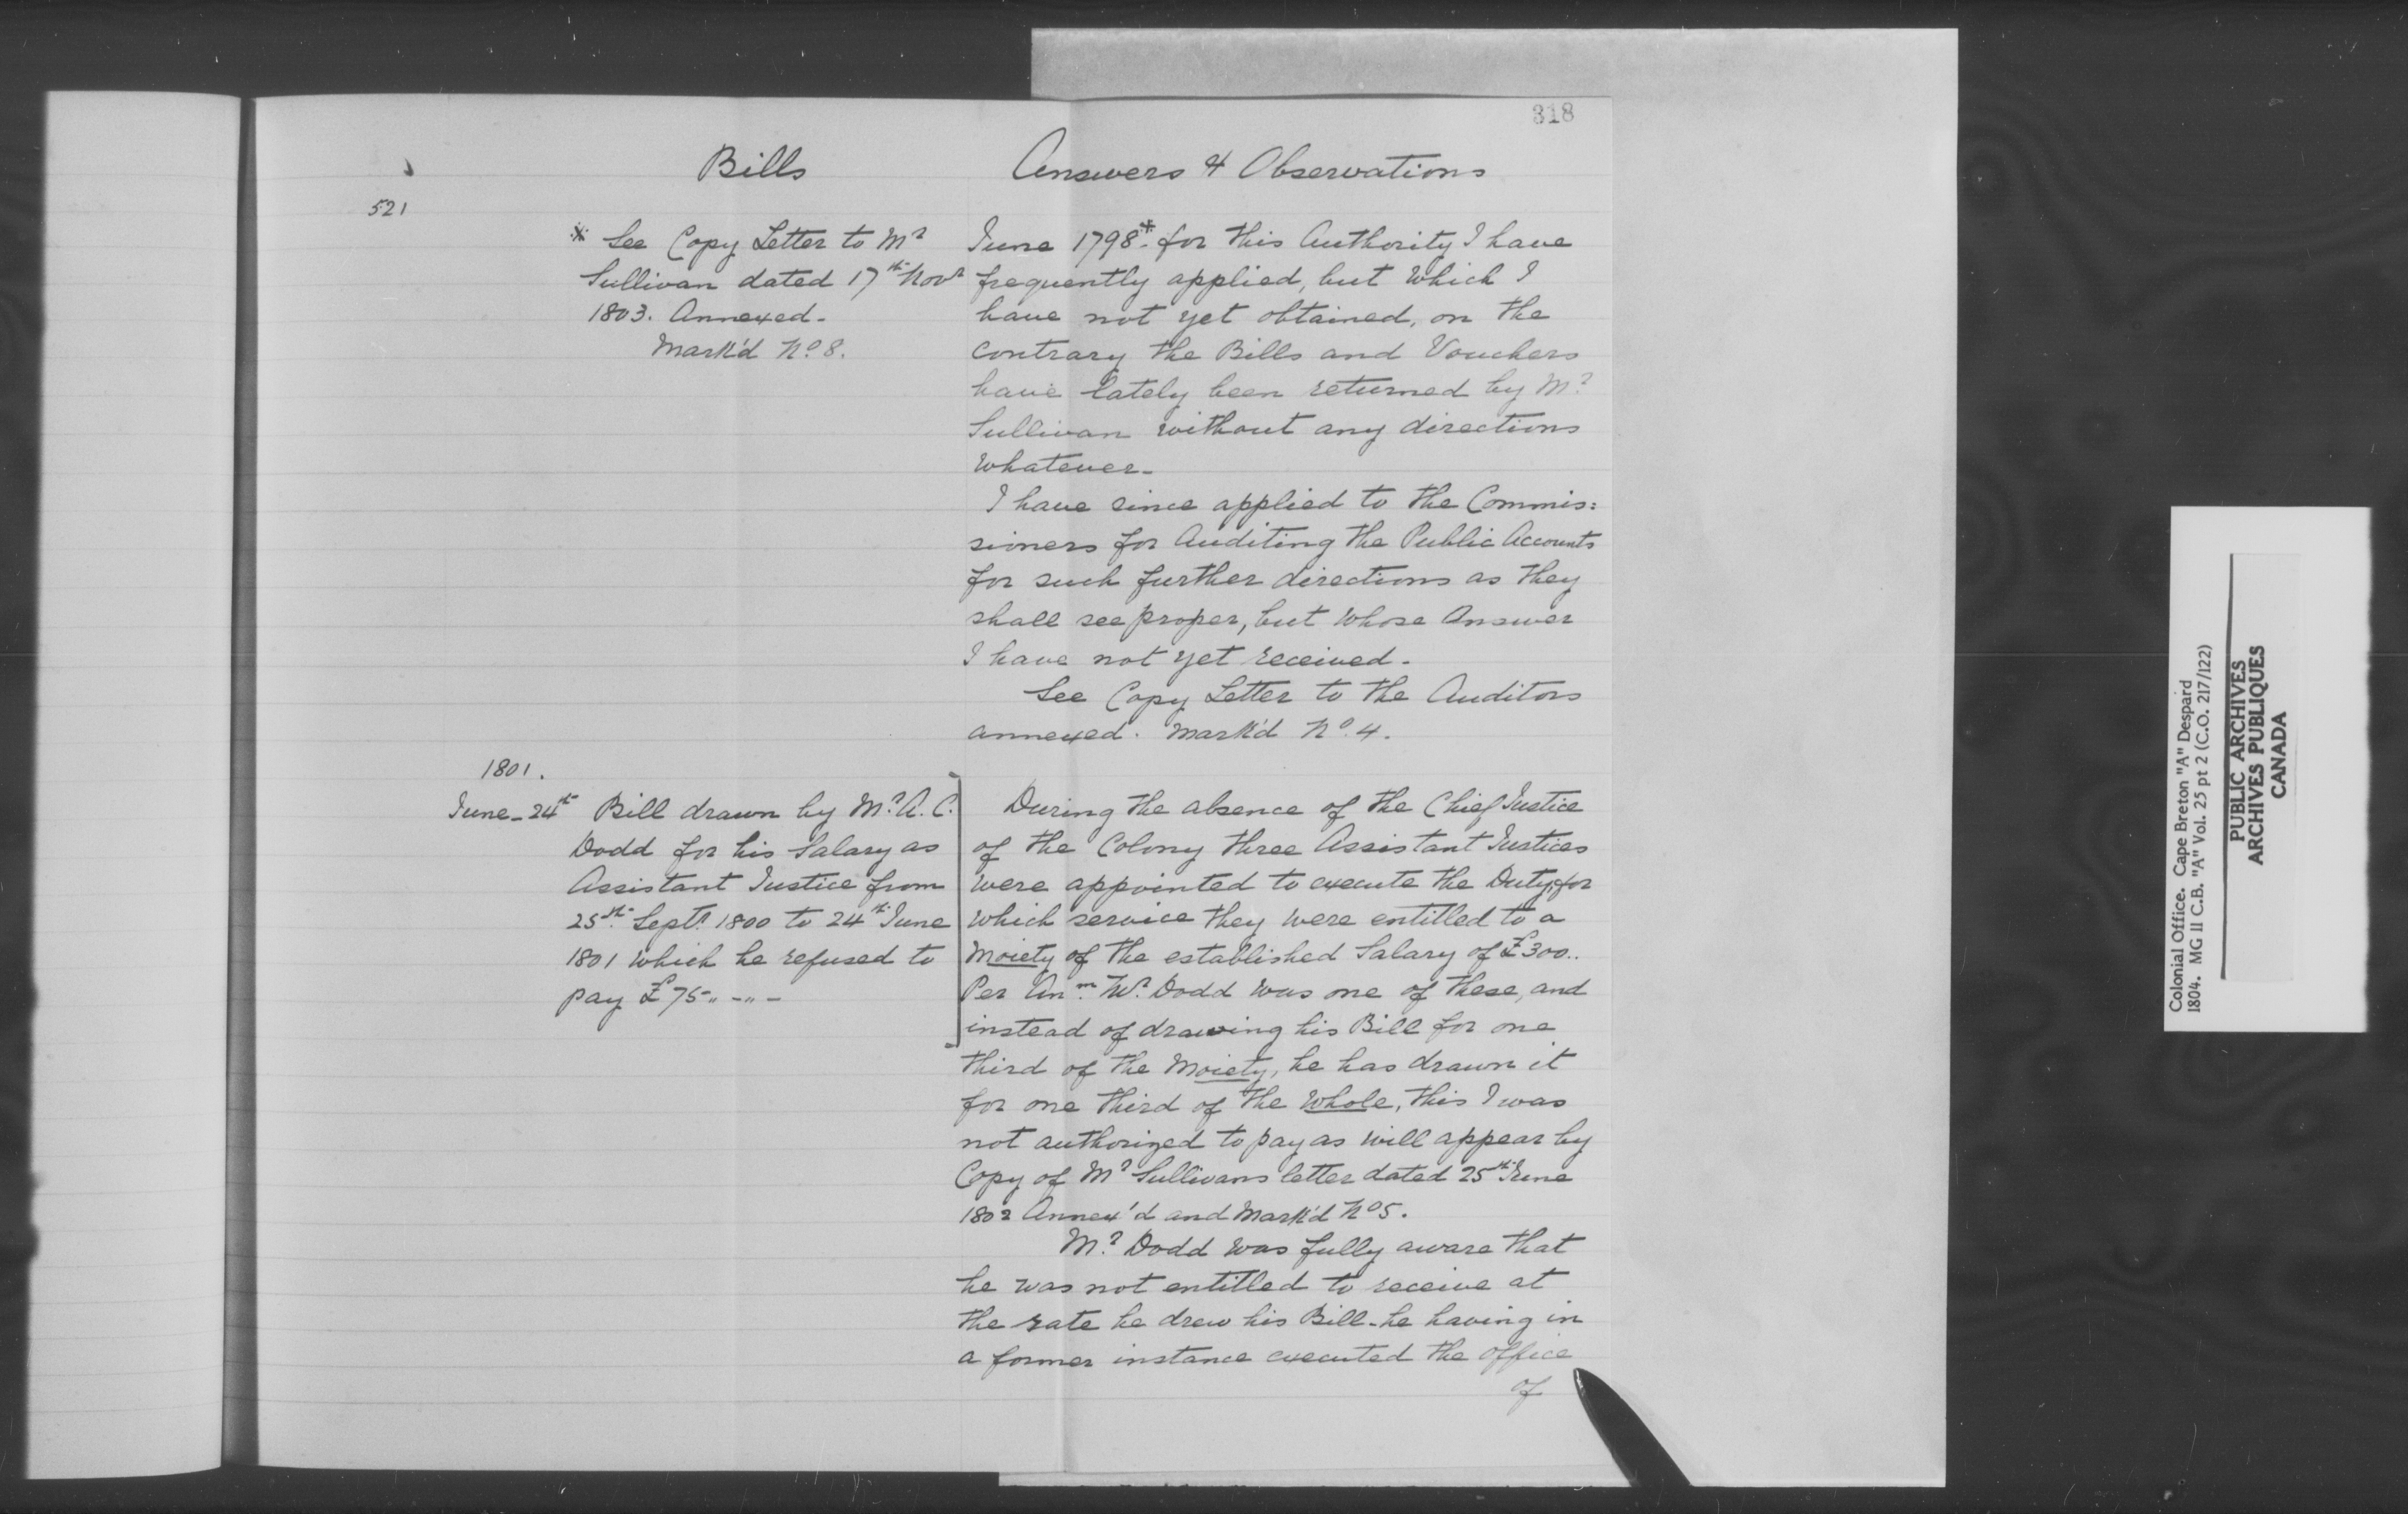 318
Bills
Answers & Observations
521
* See Copy Letter to Mr
Sullivan dated 17th Novr
1803. Annexed.
Mark'd No. 8.
June 1798* for this Authority I have
frequently applied, but which I
have not yet obtained, on the
contrary the Bills and Vouchers
have lately been returned by Mr
Sullivan without any directions
whatever.
I have since applied to the Commis:
sioners for Auditing the Public Accounts
for such further directions as they
shall see proper, but whose Answer
I have not yet received.
See Copy Letter to the Auditors
annexed. Mark'd No. 4.
1801.
June 24th Bill drawn by Mr. A. C.
Dodd for his Salary as
Assistant Justice from
25th Sept. 1800 to 24th June
1801 which he refused to
pay £75 " - " -
During the absence of the Chief Justice
of the Colony three Assistant Justices
were appointed to execute the Duty, for
which service they were entitled to a
Moiety of the established Salary of £300..
Per Anm. Mr. Dodd was one of these, and
instead of drawing his Bill for one
third of the Moiety, he has drawn it
for one third of the Whole, this I was
not authorized to pay as will appear by
Copy of Mr Sullivans letter dated 25th June
1802 Annex'd and Mark'd No 5.
Mr. Dodd was fully aware that
he was not entitled to receive at
the rate he drew his Bill - he having in
a former instance executed the office
of
Colonial Office. Cape Breton "A" Despard
1804. MG 11 C.B. "A" Vol. 25 pt 2 (C.O. 217/122)
PUBLIC ARCHIVES
ARCHIVES PUBLIQUES
CANADA